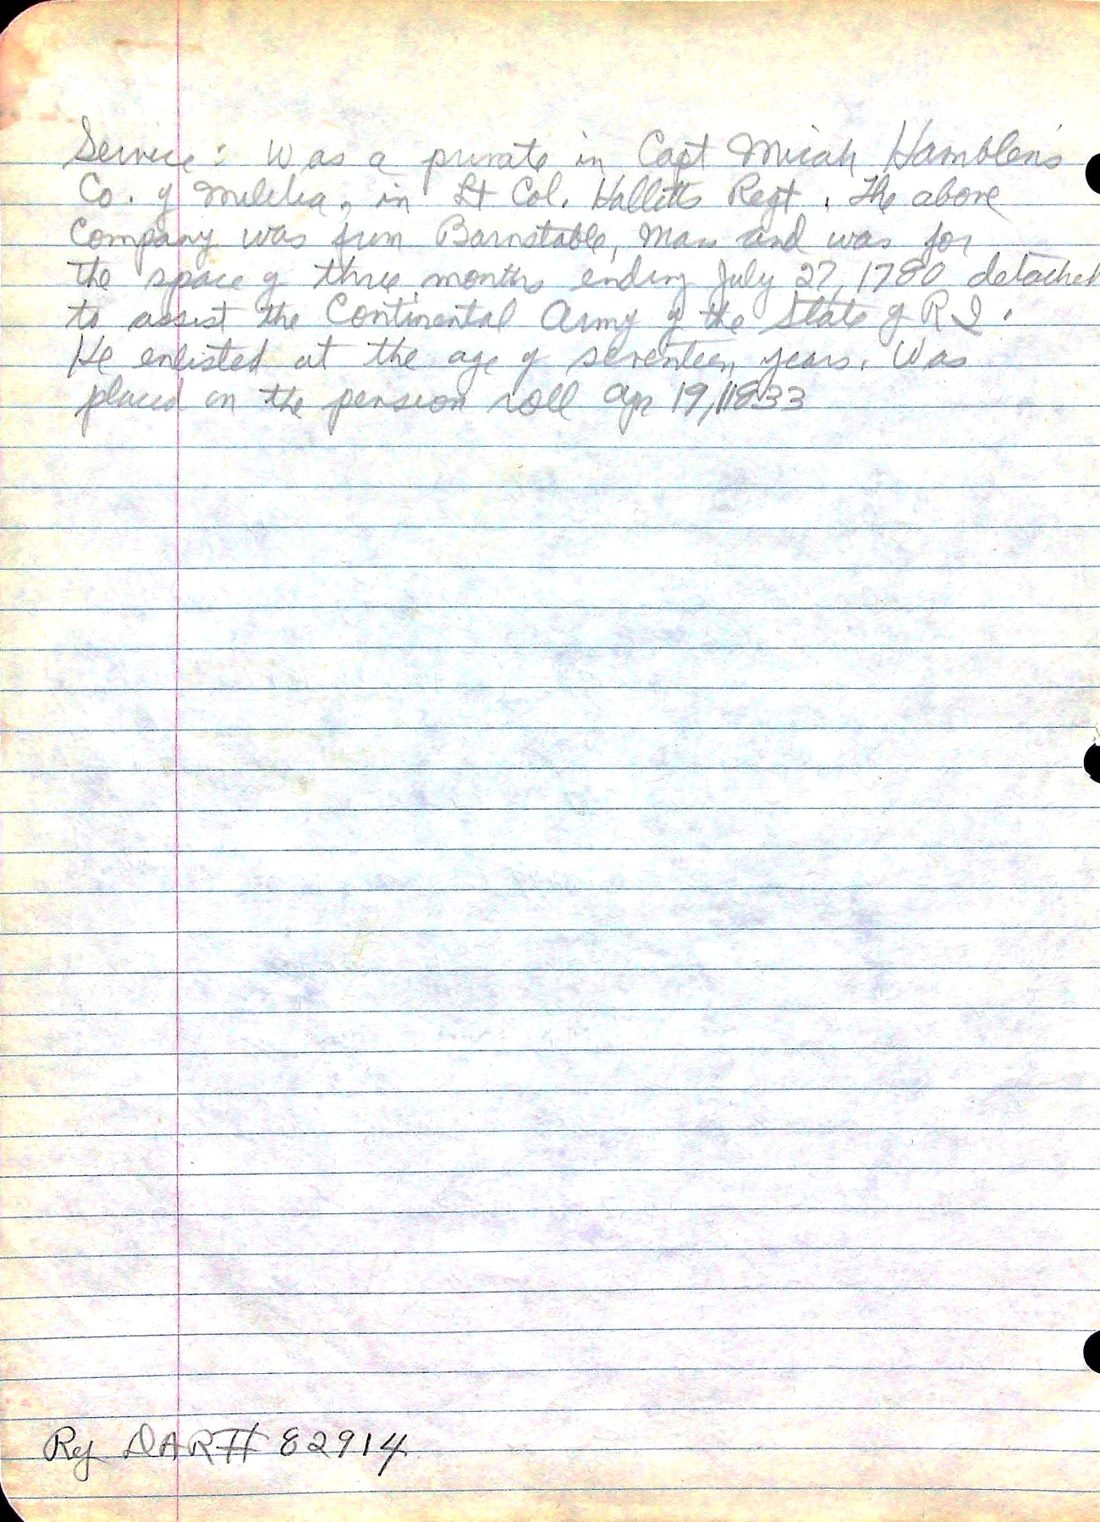 Service: Was a private in Capt Micah Hamblen's
Co. of Militia, in Lt Col. Halletts Regt. The above
Company was from Barnstable, Mass and was for
the space of three months ending July 27, 1780 detached
to assist the Continental Army of the State of R I.
He enlisted at the age of seventeen years. Was
placed on the pension roll 19, 1833
Ref DAR# 82914